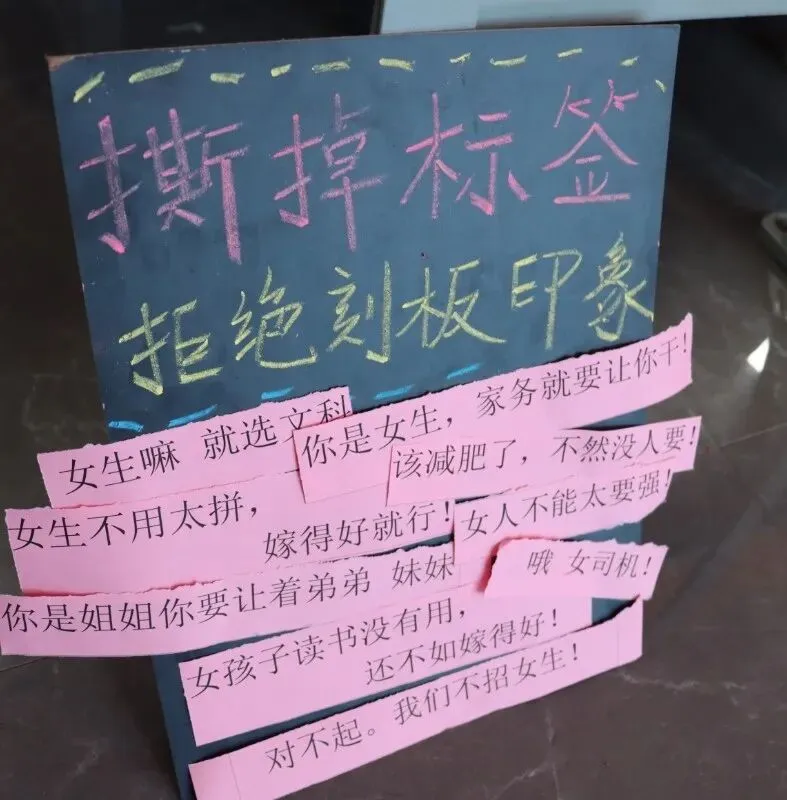 撕掉标签
拒绝刻板印象
女生嘛 就选文科
你是女生，家务就要让你干！
该减肥了，不然没人要！
女生不用太拼，
嫁得好就行！
女人不能太要强！
哦 女司机！
你是姐姐你要让着弟弟 妹妹
女孩子读书没有用，
还不如嫁得好！
对不起。我们不招女生！